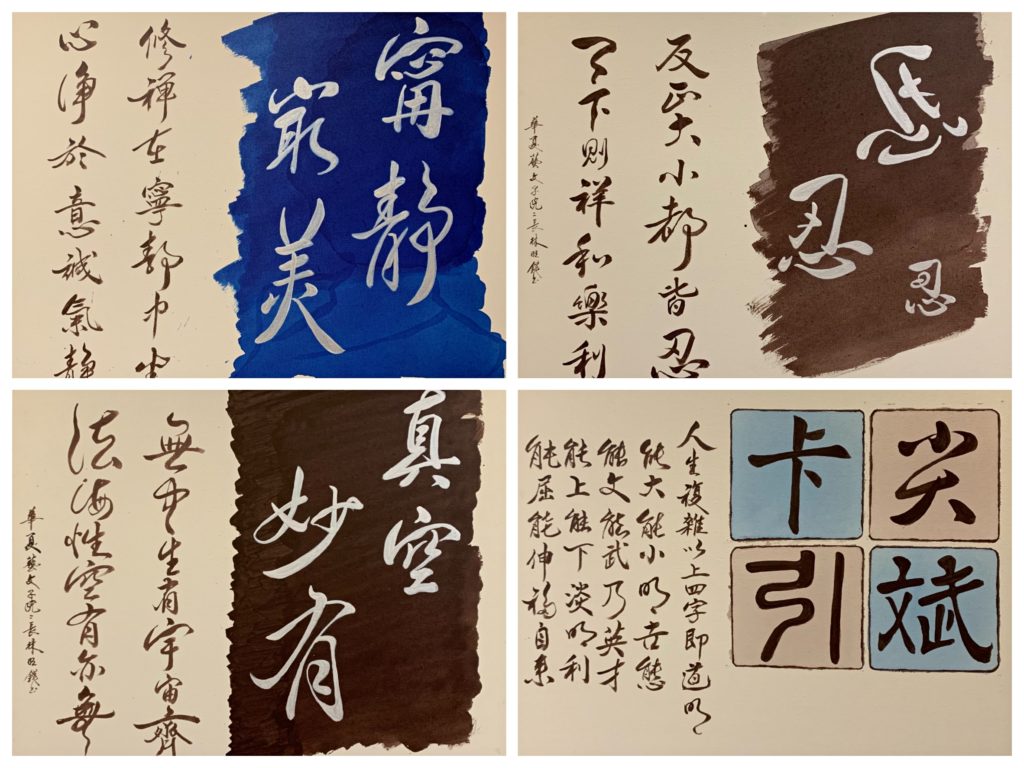 甯靜
最美
修禪在寧靜中坐
心淨於意誠氣靜
忍
忍
忍
反正大小都皆忍
天下則祥和樂利
華夏藝文学院〻長林旺
真空
妙有
無中生有宇宙齊
法海性空有亦無
華夏藝文学院〻長林旺
尖
卡
斌
引
人生複雜以上四字即道明
能大能小明去態
能文能武乃英才
能上能下淡明利
能屈能伸福自來